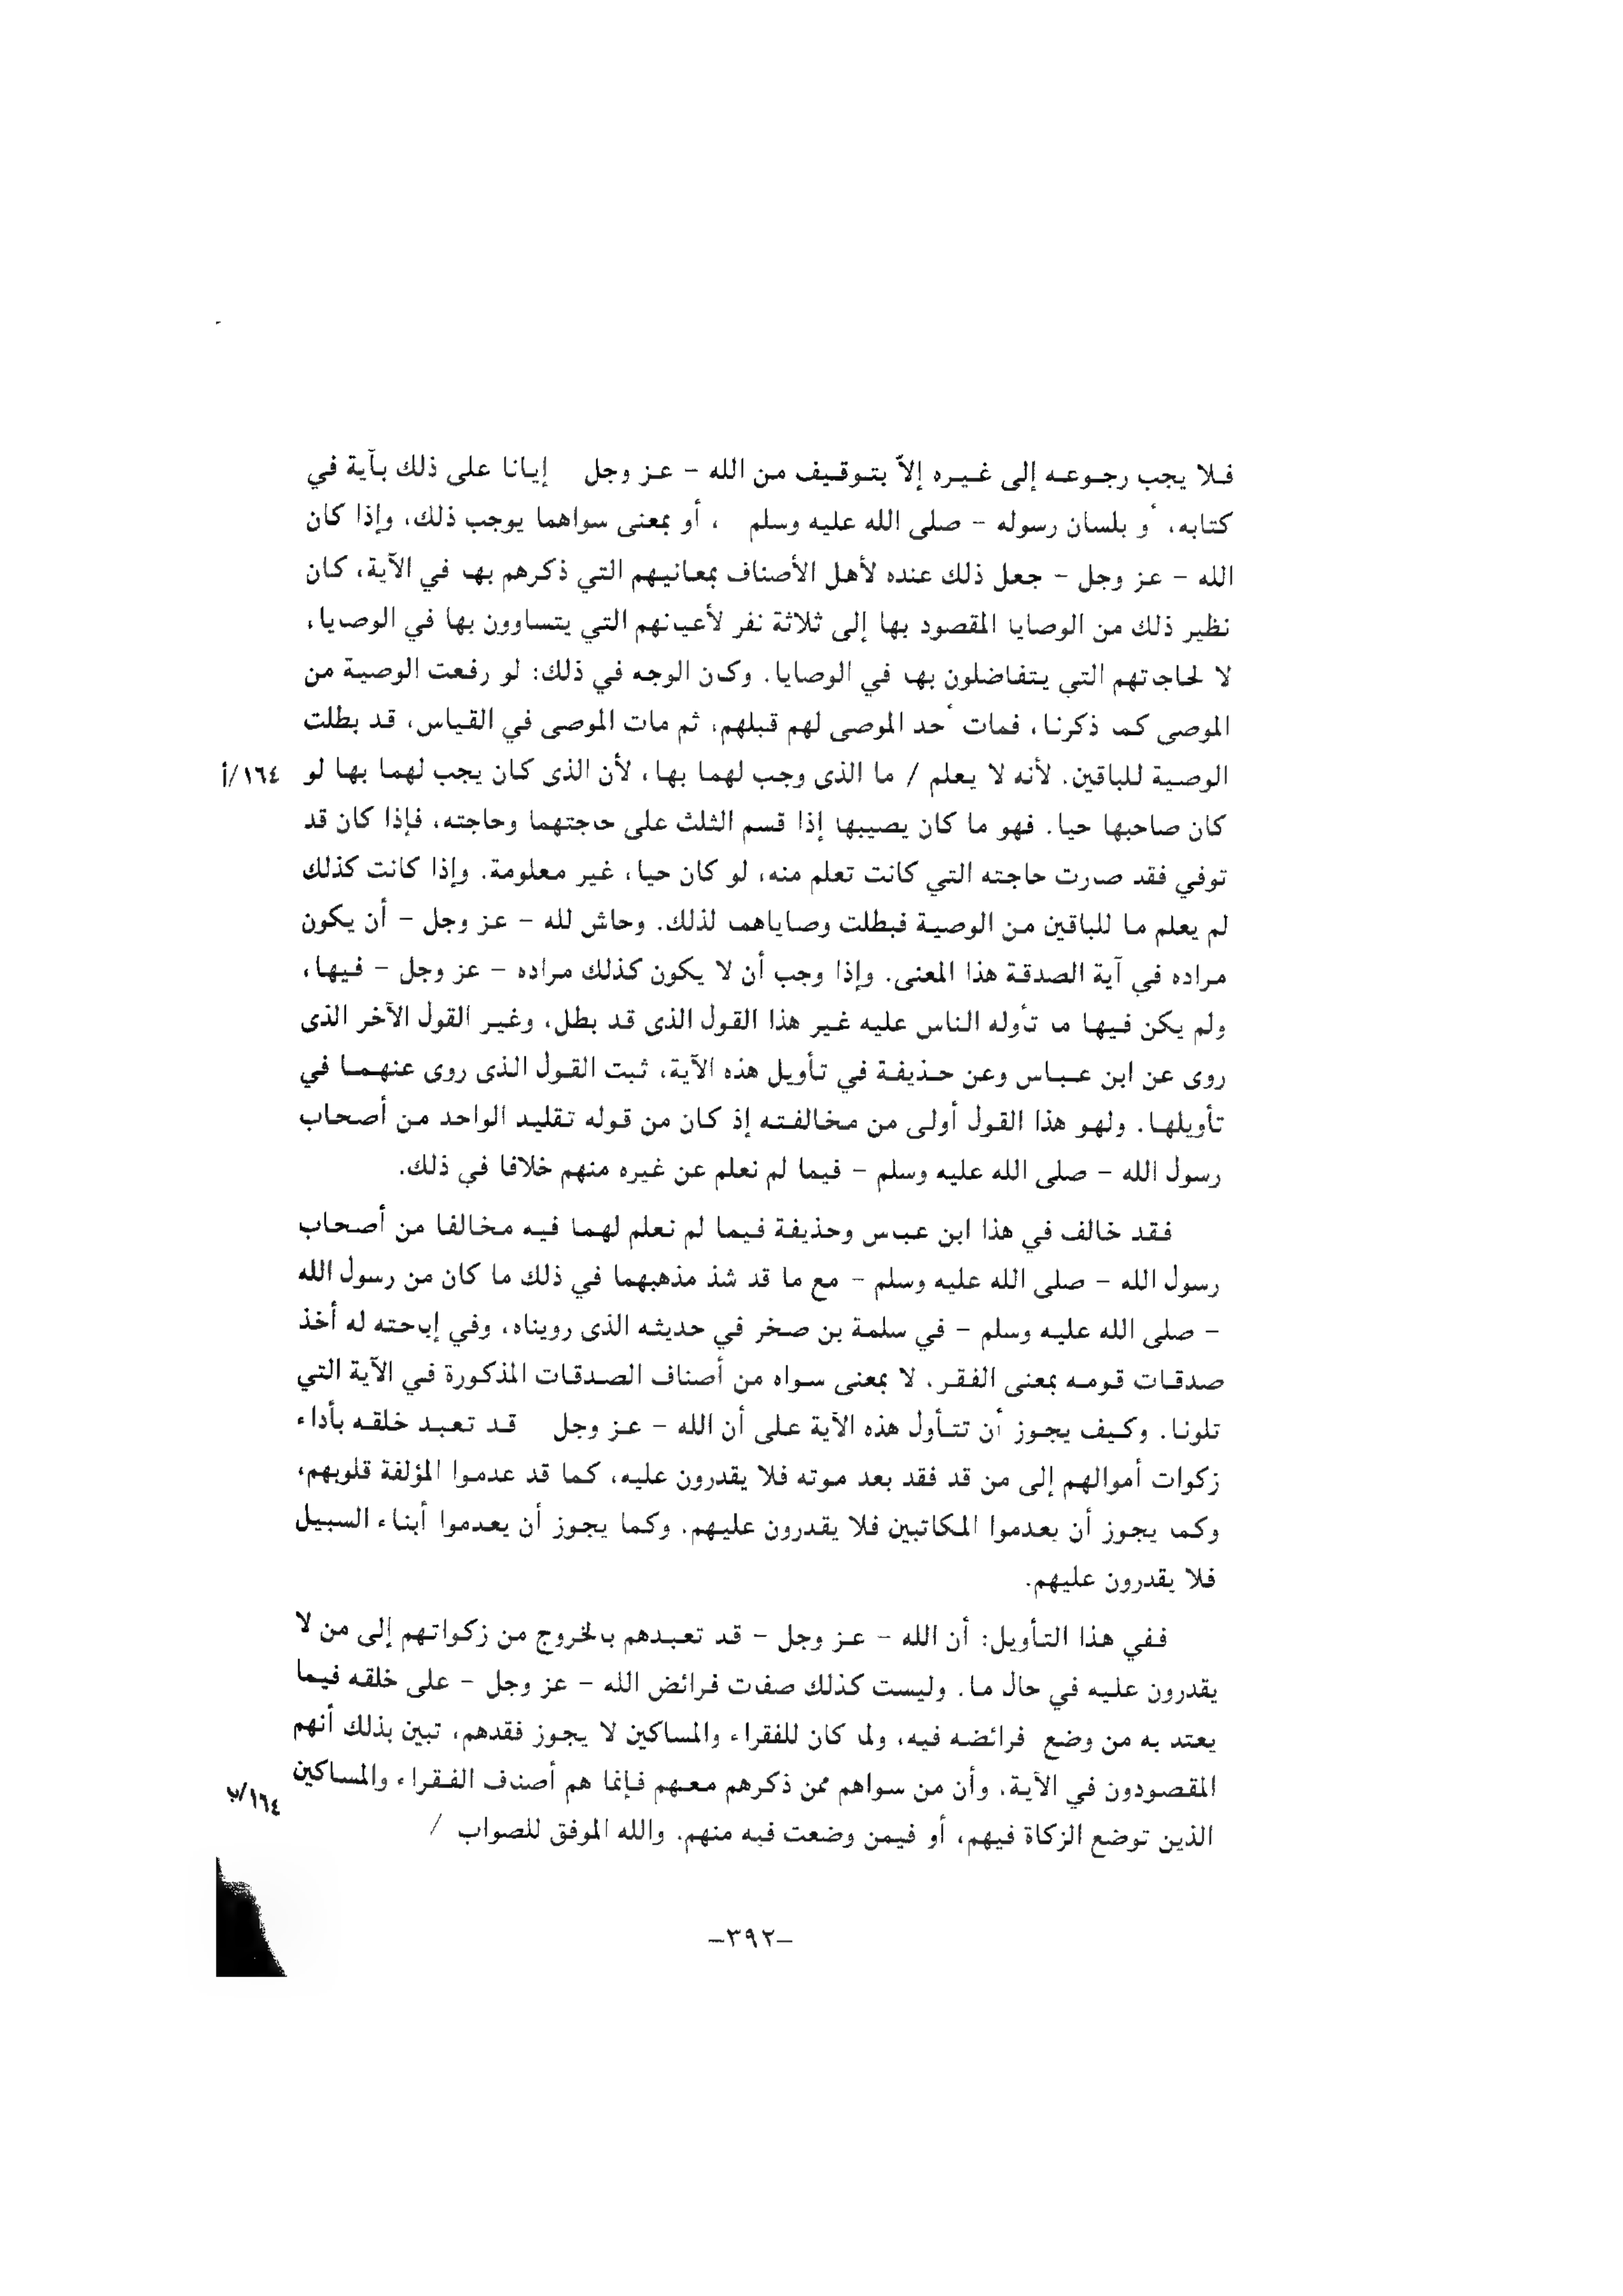 فلا يجب رجوعه إلى غيره إلاّ بتوقيف من الله - عز وجل إيانا على ذلك بآية في
كتابه، أو بلسان رسوله - صلى الله عليه وسلم ، أو بمعنى سواهما يوجب ذلك، وإذا كان
الله - عز وجل - جعل ذلك عنده لأهل الأصناف بمعانيهم التي ذكرهم بها في الآية، كان
نظير ذلك من الوصايا المقصود بها إلى ثلاثة نفر لأعيانهم التي يتساوون بها في الوصايا،
لا لحاجاتهم التي يتفاضلون بها في الوصايا. وكان الوجه في ذلك: لو رفعت الوصية من
الموصى كما ذكرنا، فمات أحد الموصى لهم قبلهم، ثم مات الموصى في القياس، قد بطلت
الوصية للباقين. لأنه لا يعلم / ما الذى وجب لهما بها، لأن الذى كان يجب لهما بها لو
١٦٤/أ
كان صاحبها حيا. فهو ما كان يصيبها إذا قسم الثلث على حاجتهما وحاجته، فإذا كان قد
توفي فقد صارت حاجته التي كانت تعلم منه، لو كان حيا، غير معلومة. وإذا كانت كذلك
لم يعلم ما للباقين من الوصية فبطلت وصاياهما لذلك. وحاش لله - عز وجل - أن يكون
مراده في آية الصدقة هذا المعنى. وإذا وجب أن لا يكون كذلك مراده - عز وجل - فيها،
ولم يكن فيها ما تأوله الناس عليه غير هذا القول الذى قد بطل، وغير القول الآخر الذى
روى عن ابن عباس وعن حذيفة في تأويل هذه الآية، ثبت القول الذى روى عنهما في
تأويلها. ولهو هذا القول أولى من مخالفته إذ كان من قوله تقليد الواحد من أصحاب
رسول الله - صلى الله عليه وسلم - فيما لم نعلم عن غيره منهم خلافا في ذلك.
فقد خالف في هذا ابن عباس وحذيفة فيما لم نعلم لهما فيه مخالفا من أصحاب
رسول الله - صلى الله عليه وسلم - مع ما قد شذ مذهبهما في ذلك ما كان من رسول الله
- صلى الله عليه وسلم - في سلمة بن صخر في حديثه الذى رويناه، وفي إباحته له أخذ
صدقات قومه بمعنى الفقر. لا بمعنى سواه من أصناف الصدقات المذكورة في الآية التي
تلونا. وكيف يجوز أن تتأول هذه الآية على أن الله - عز وجل قد تعبد خلقه بأداء
زكوات أموالهم إلى من قد فقد بعد موته فلا يقدرون عليه، كما قد عدموا المؤلفة قلوبهم،
وكما يجوز أن يعدموا المكاتبين فلا يقدرون عليهم. وكما يجوز أن يعدموا أبناء السبيل
فلا يقدرون عليهم.
ففي هذا التأويل: أن الله - عز وجل - قد تعبدهم بالخروج من زكواتهم إلى من لا
يقدرون عليه في حال ما. وليست كذلك صفات فرائض الله - عز وجل - على خلقه فيما
يعتد به من وضع فرائضه فيه، ولما كان للفقراء والمساكين لا يجوز فقدهم، تبين بذلك أنهم
المقصودون في الآية. وأن من سواهم ممن ذكرهم معهم فإنما هم أصناف الفقراء والمساكين
١٦٤/ب
الذين توضع الزكاة فيهم، أو فيمن وضعت فيه منهم. والله الموفق للصواب /
-٣٩٢-